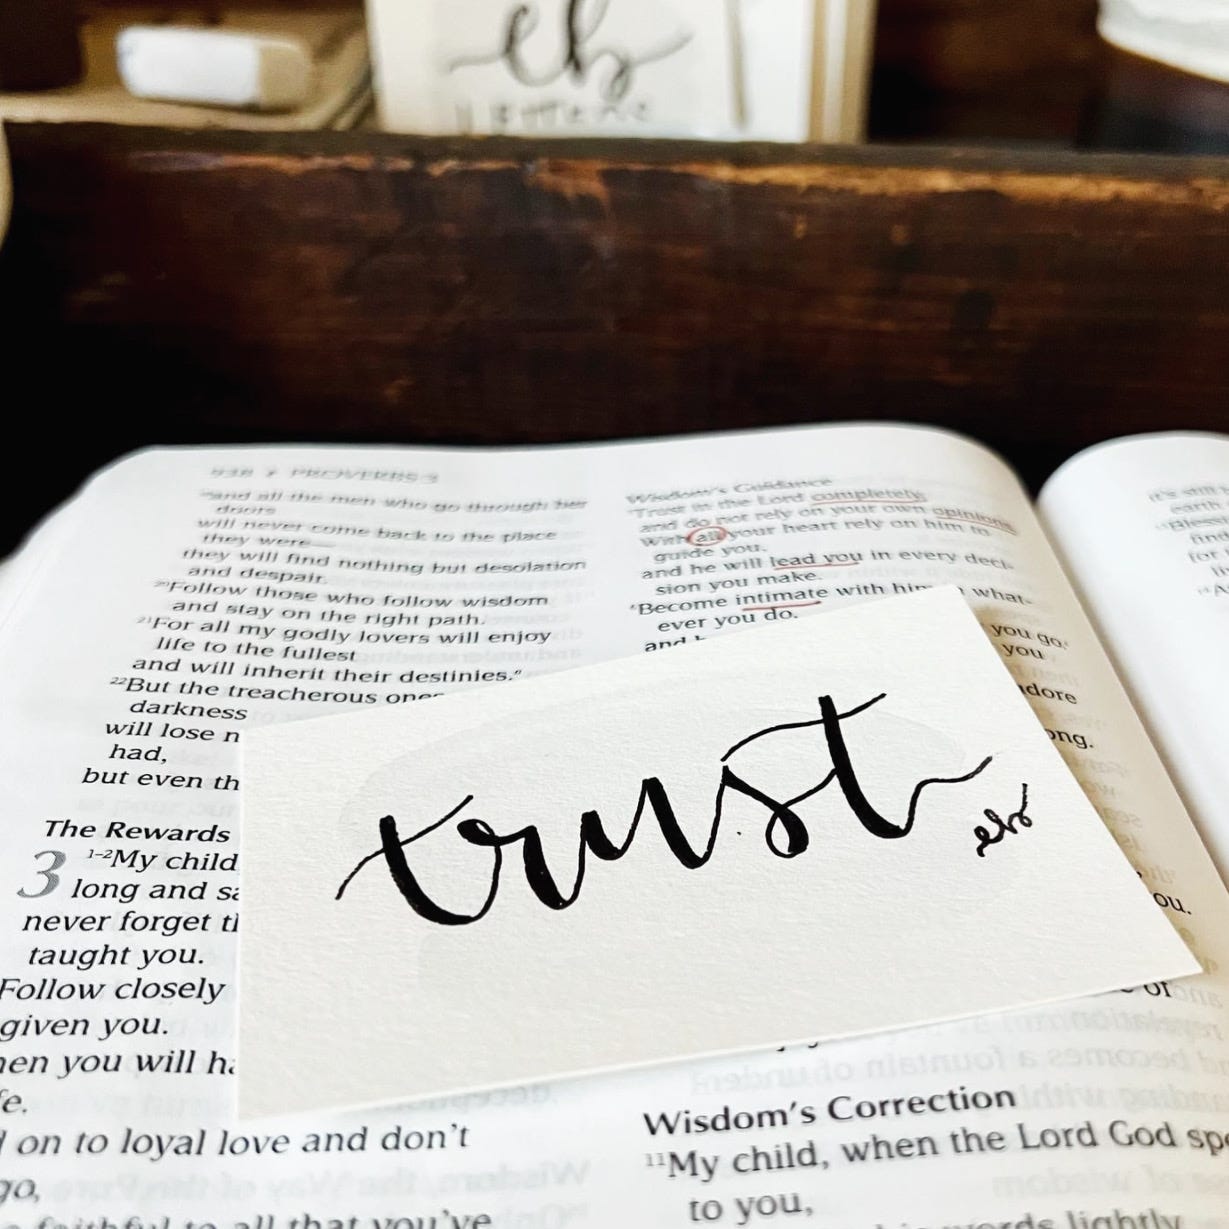 eb
PROVERBS
and all the men who go through her
doors
will never come back to the place
they were—
they will find nothing but desolation
and despair.
20Follow those who follow wisdom
and stay on the right path.
21For all my godly lovers will enjoy
life to the fullest
and will inherit their destinies."
22But the treacherous ones
darkness
will lose
had,
but even th
The Rewards
3 1-2My child,
long and
never forget
taught you.
Follow closely
given you.
you will
on to loyal love and don't
go,
to all that you've
Wisdom's Guidance
5Trust in the Lord completely,
and do not rely on your own opinions.
With all your heart rely on him to
guide you,
and he will lead you in every deci-
sion you make.
6Become intimate with him in what-
ever you do,
and
you go.
you
adore
ou.
of
Wisdom's Correction
11My child, when the Lord God
to you,
words lightly
trust
eb